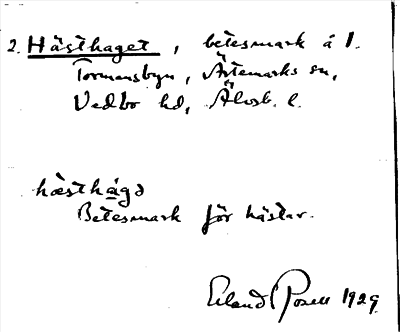 2. Hästhaget, betesmark å 1.
Tormansbyn, Ärtemarks sn,
Vedbo hd, Älvsb. l.
hæsthågd
Betesmark för hästar.
Erland Rosell 1929.